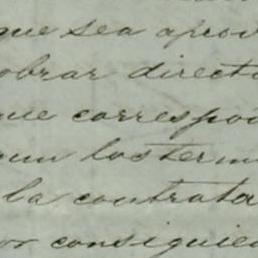 que sea aprov
obrar directa
que correspon
gun los termi
la contrata
or consiguien